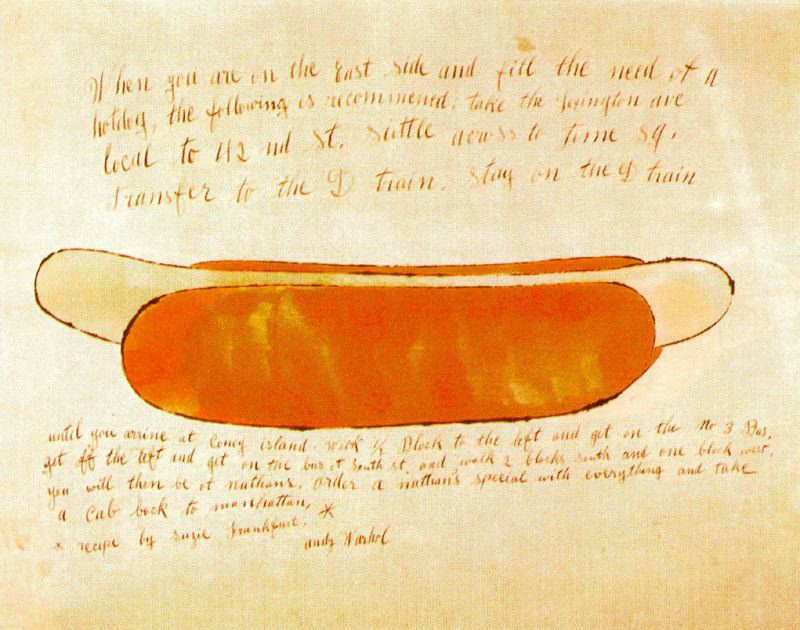 When you are on the East side and fill the need of a
hotdog, the following is recommened, take the Lexington ave
local to 42 nd St. suttle across to Time Sq.
Transfer to the D train. Stay on the D train
until you arrine at Coney island. walk ½ Block to the left and get on the No 3 Bus,
get off the left and get on the bus at South st. and walk 2 blocks south and one block west,
you will then be at nathans. order a nathan's special with everything and take
a cab back to manhattan, *
* recipe by Suzie Frankfurt.
andy Warhol